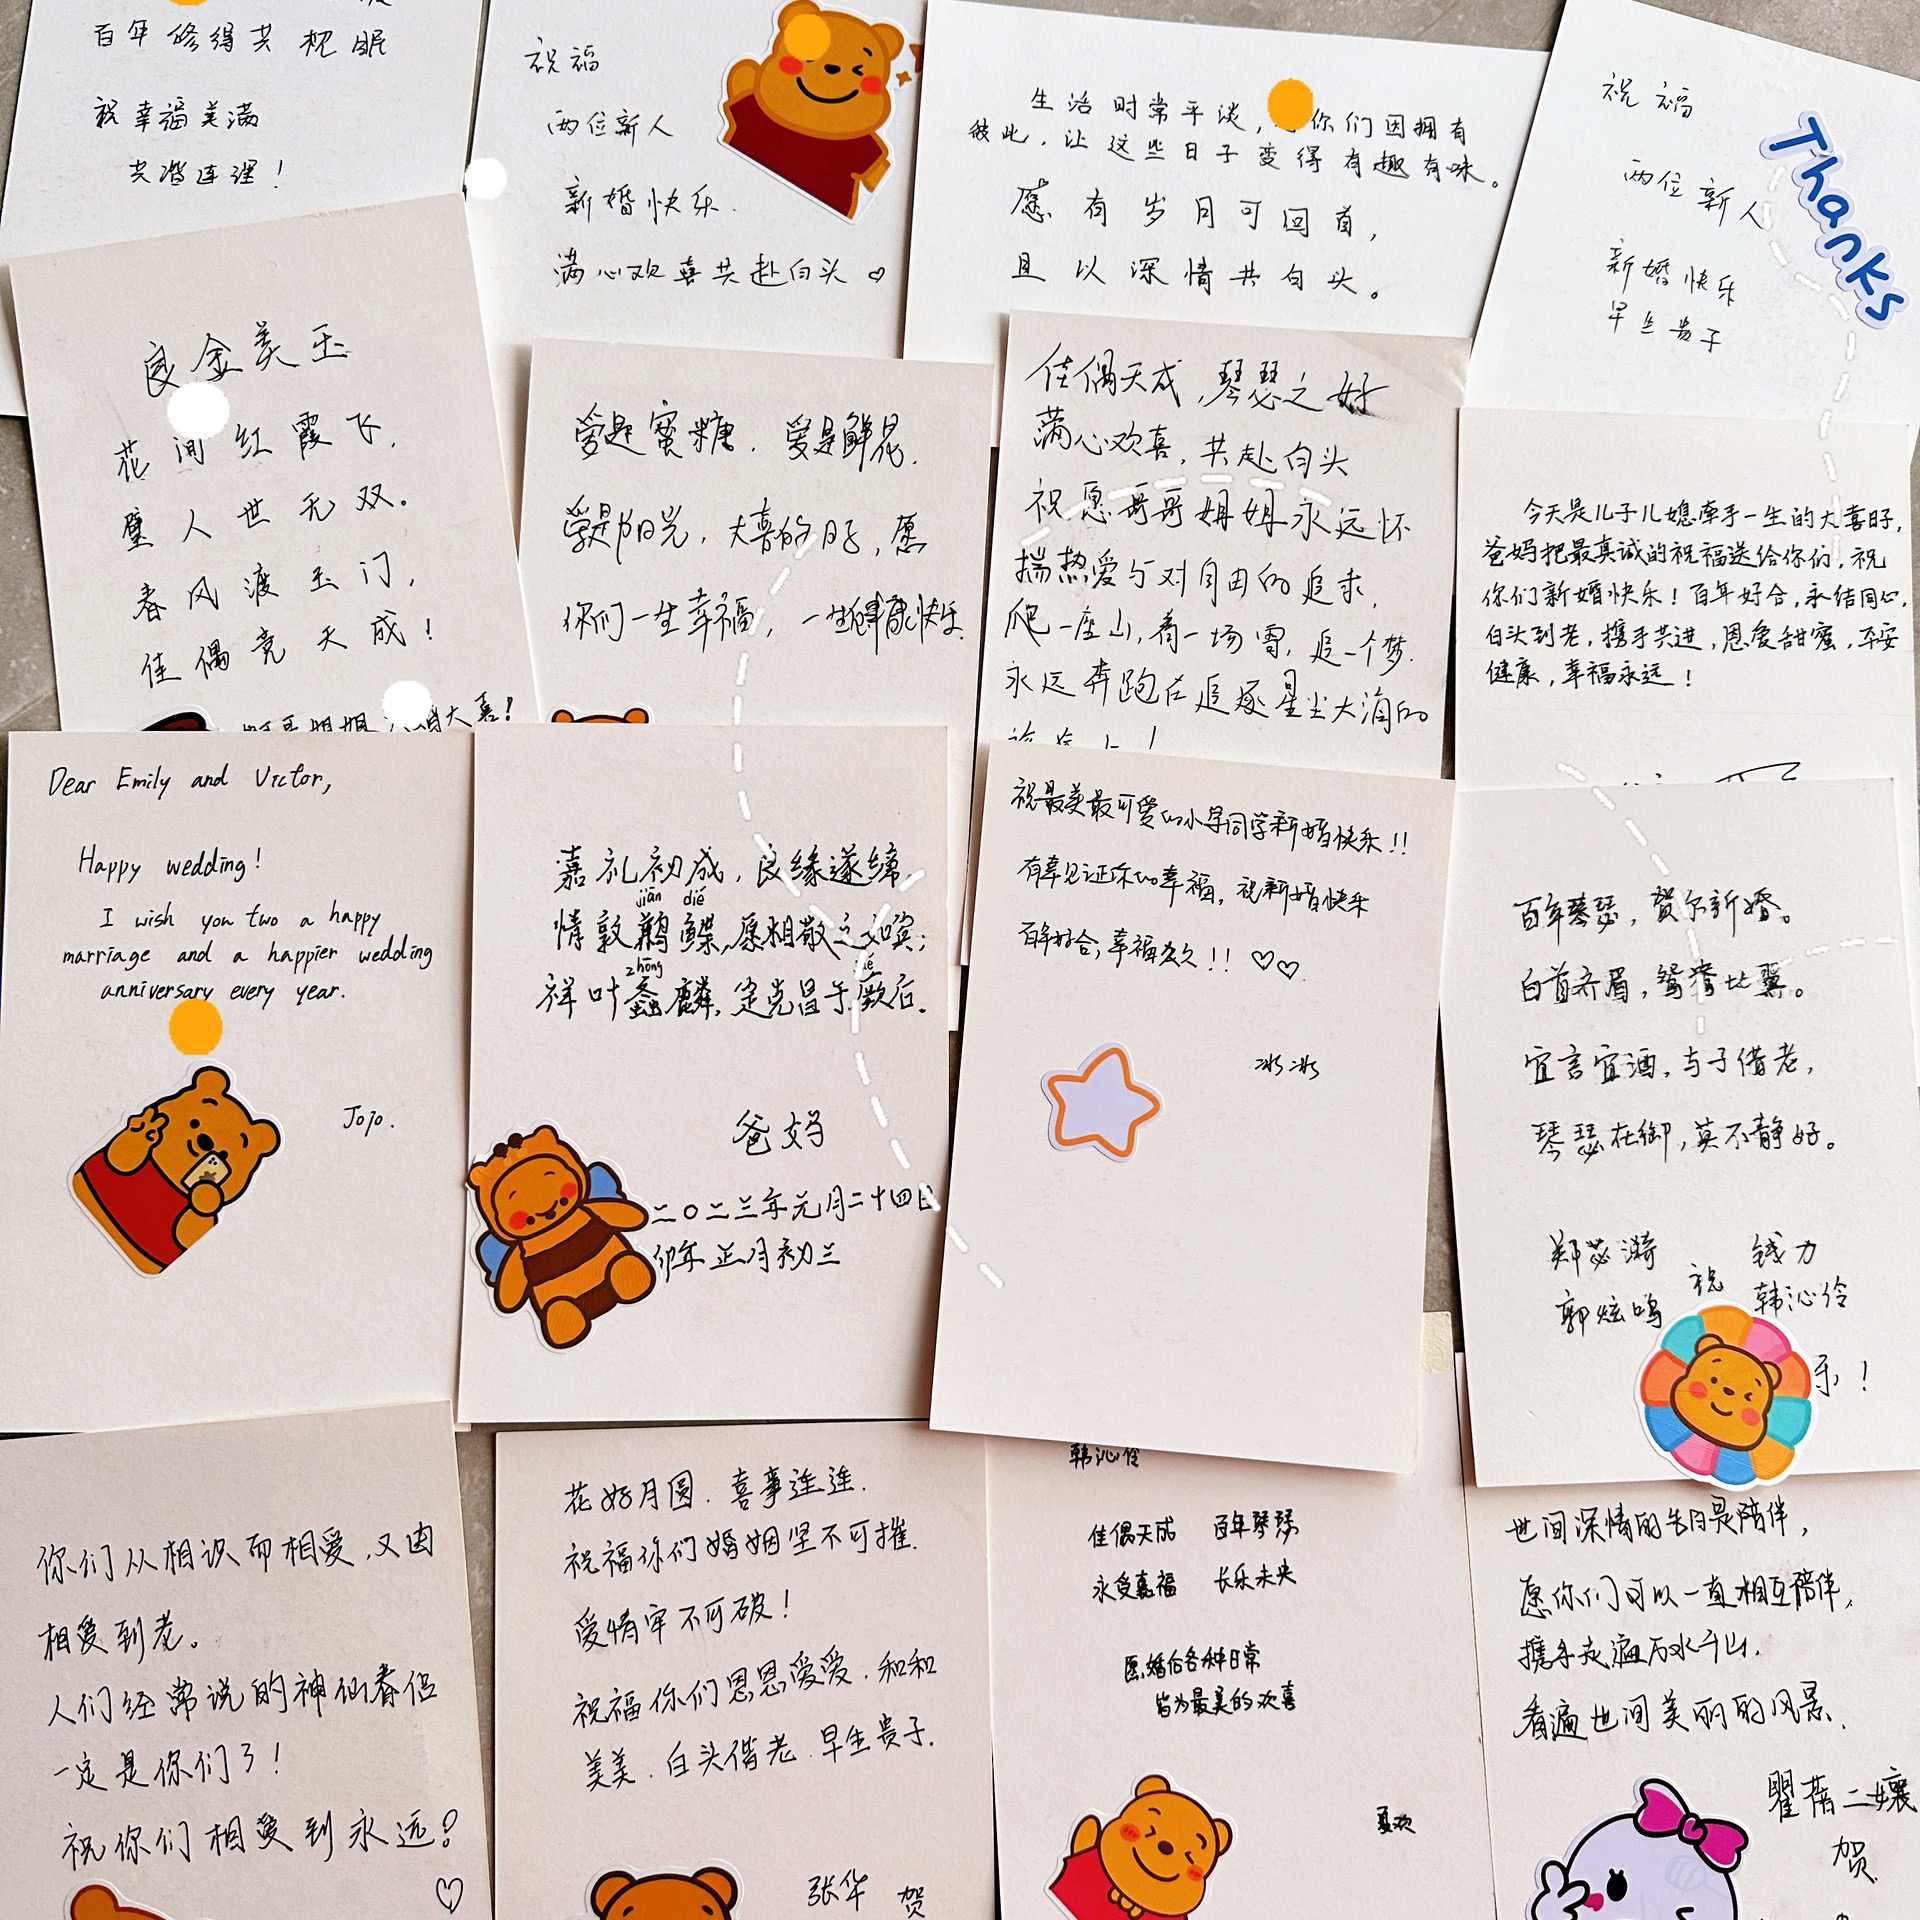 百年修得共枕眠
祝幸福美满
共谐连理!
祝福
两位新人
新婚快乐.
满心欢喜共赴白头♡
生活时常平淡, 你们因拥有
彼此,让这些日子变得有趣有味。
愿有岁月可回首,
且以深情共白头。
祝福
两位新人
新婚快乐
早生贵子
Thanks
良金美玉
花间红霞飞,
璧人世无双。
春风渡玉门,
佳偶竞天成!
姐姐 大喜!
爱是蜜糖.爱是鲜花.
爱是阳光,大喜的日子,愿
你们一生幸福,一生健康快乐.
佳偶天成,琴瑟之好
满心欢喜,共赴白头
祝愿哥哥姐姐永远怀
揣热爱与对自由的追求,
爬一座山,看一场雪,追一个梦.
永远奔跑在追逐星尘大海的
今天是儿子儿媳牵手一生的大喜日子,
爸妈把最真诚的祝福送给你们,祝
你们新婚快乐!百年好合,永结同心,
白头到老,携手共进,恩爱甜蜜,平安
健康,幸福永远!
Dear Emily and Victor,
Happy wedding!
I wish you two a happy
marriage and a happier wedding
anniversary every year.
Jojo.
嘉礼初成,良缘遂缔.
jiān dié
情敦鹣鲽,愿相敬之如宾;
zhōng
祥叶螽麟,定克昌于厥后.
爸妈
二〇二三年元月二十四日
卯年正月初三
祝最美最可爱的小学同学新婚快乐!!
有幸见证你的幸福,祝新婚快乐
百年好合,幸福久久!!♡♡
冰冰
百年琴瑟,贺尔新婚。
白首齐眉,鸳鸯比翼。
宜言宜酒,与子偕老,
琴瑟在御,莫不静好。
郑苾漪 钱力
祝
郭炫鸣 韩沁伶
乐!
你们从相识而相爱,又因
相爱到老。
人们经常说的神仙眷侣
一定是你们了!
祝你们相爱到永远!
♡
花好月圆.喜事连连.
祝福你们婚姻坚不可摧.
爱情牢不可破!
祝福你们恩恩爱爱.和和
美美.白头偕老.早生贵子.
张华 贺
韩沁伶
佳偶天成 百年琴瑟
永受嘉福 长乐未央
愿婚后各种日常
皆为最美的欢喜
夏欢
世间深情的告白是陪伴,
愿你们可以一直相互陪伴,
携手走遍万水千山.
看遍世间美丽的风景.
贺